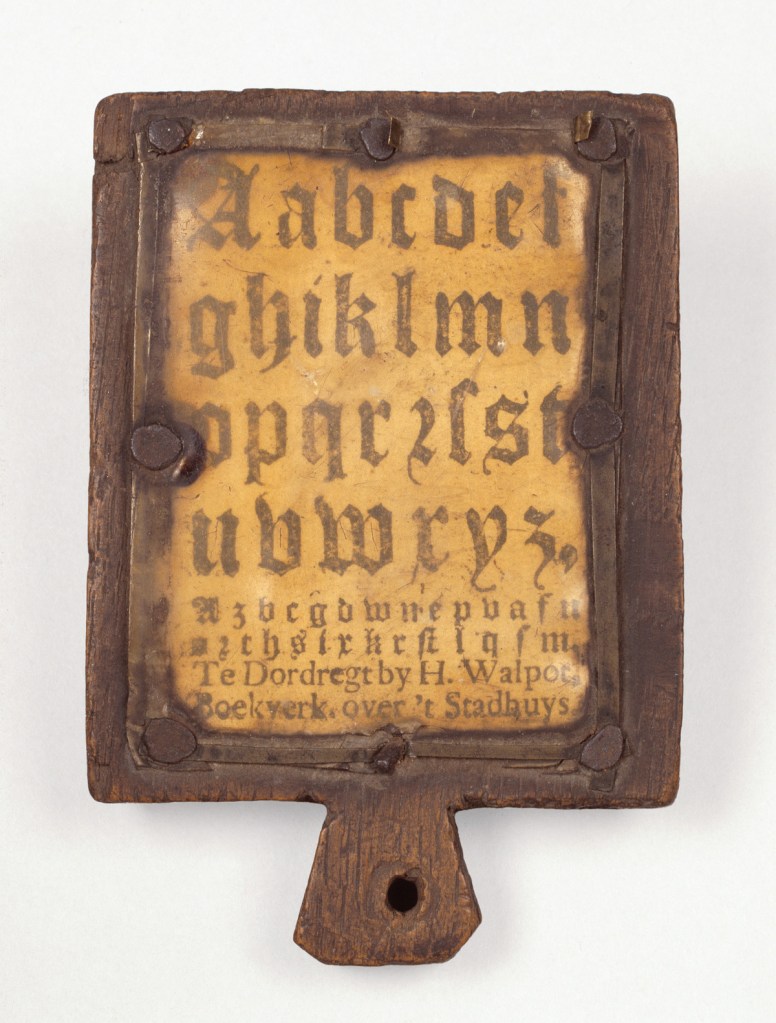 A a b c d e f
g h i k l m n
o p q r ꝛ ſ s t
u v w x y z.
A z b c g d w n e p v a f u
o ꝛ t h s i x k r ſt l q ſ m.
Te Dordregt by H. Walpot,
Boekverk. over 't Stadhuys.